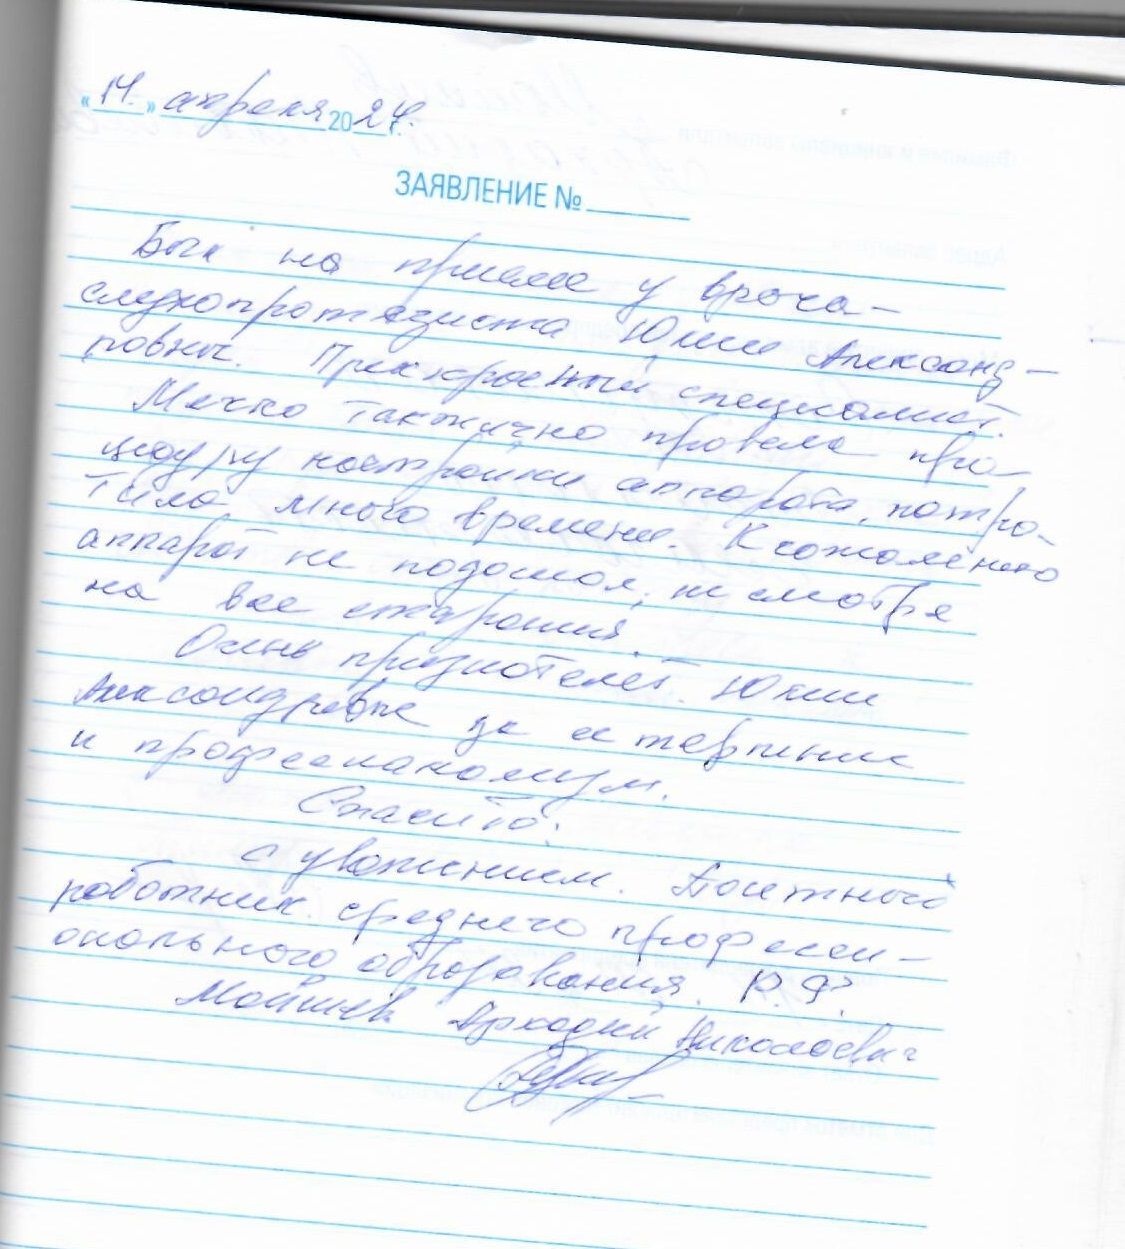 «14.» апреля 2024г.
ЗАЯВЛЕНИЕ №
Был на приеме у врача-
слухопротезиста Юлии Александ-
ровны. Прекрасный специалист.
Мягко тактично провела про-
цедуру настройки аппарата, потра-
тила много времени. К сожалению
аппарат не подошол, не смотря
на все старания.
Очень признателен Юлии
Александровне за ее терпение
и професианализм.
Спасибо.
С уважением. Почетный
работник среднего професси-
онального образования Р.Ф.
Аркадий Николаевич